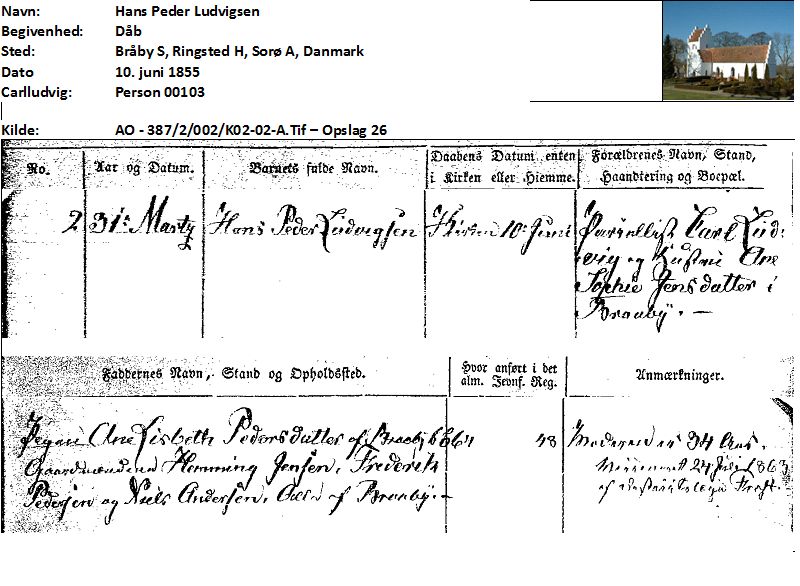 Navn: Hans Peder Ludvigsen
Begivenhed: Dåb
Sted: Bråby S, Ringsted H, Sorø A, Danmark
Dato 10. juni 1855
Carlludvig: Person 00103
Kilde: AO - 387/2/002/K02-02-A.Tif – Opslag 26
No. Aar og Datum. Barnets fulde Navn. Daabens Datum enten i Kirken eller Hiemme. Forældrenes Navn, Stand, Haandtering og Bopæl.
2 31te Marty Hans Peder Ludvigsen Kirken 10de Juni Parcellist Carl Lud-
vig og Hustru Ane
Sophie Jensdatter i
Braaby. —
Faddernes Navn, Stand og Opholdssted. Hvor anført i det alm. Jevnf. Reg. Anmærkninger.
Pigen Ane Lisbeth Pedersdatter af Braaby 48 Moderen er 34 Aar.
Gaardmændene Hemming Jensen, Frederik 24 Juli 1863
Pedersen og Niels Andersen, Alle af Braaby. — af